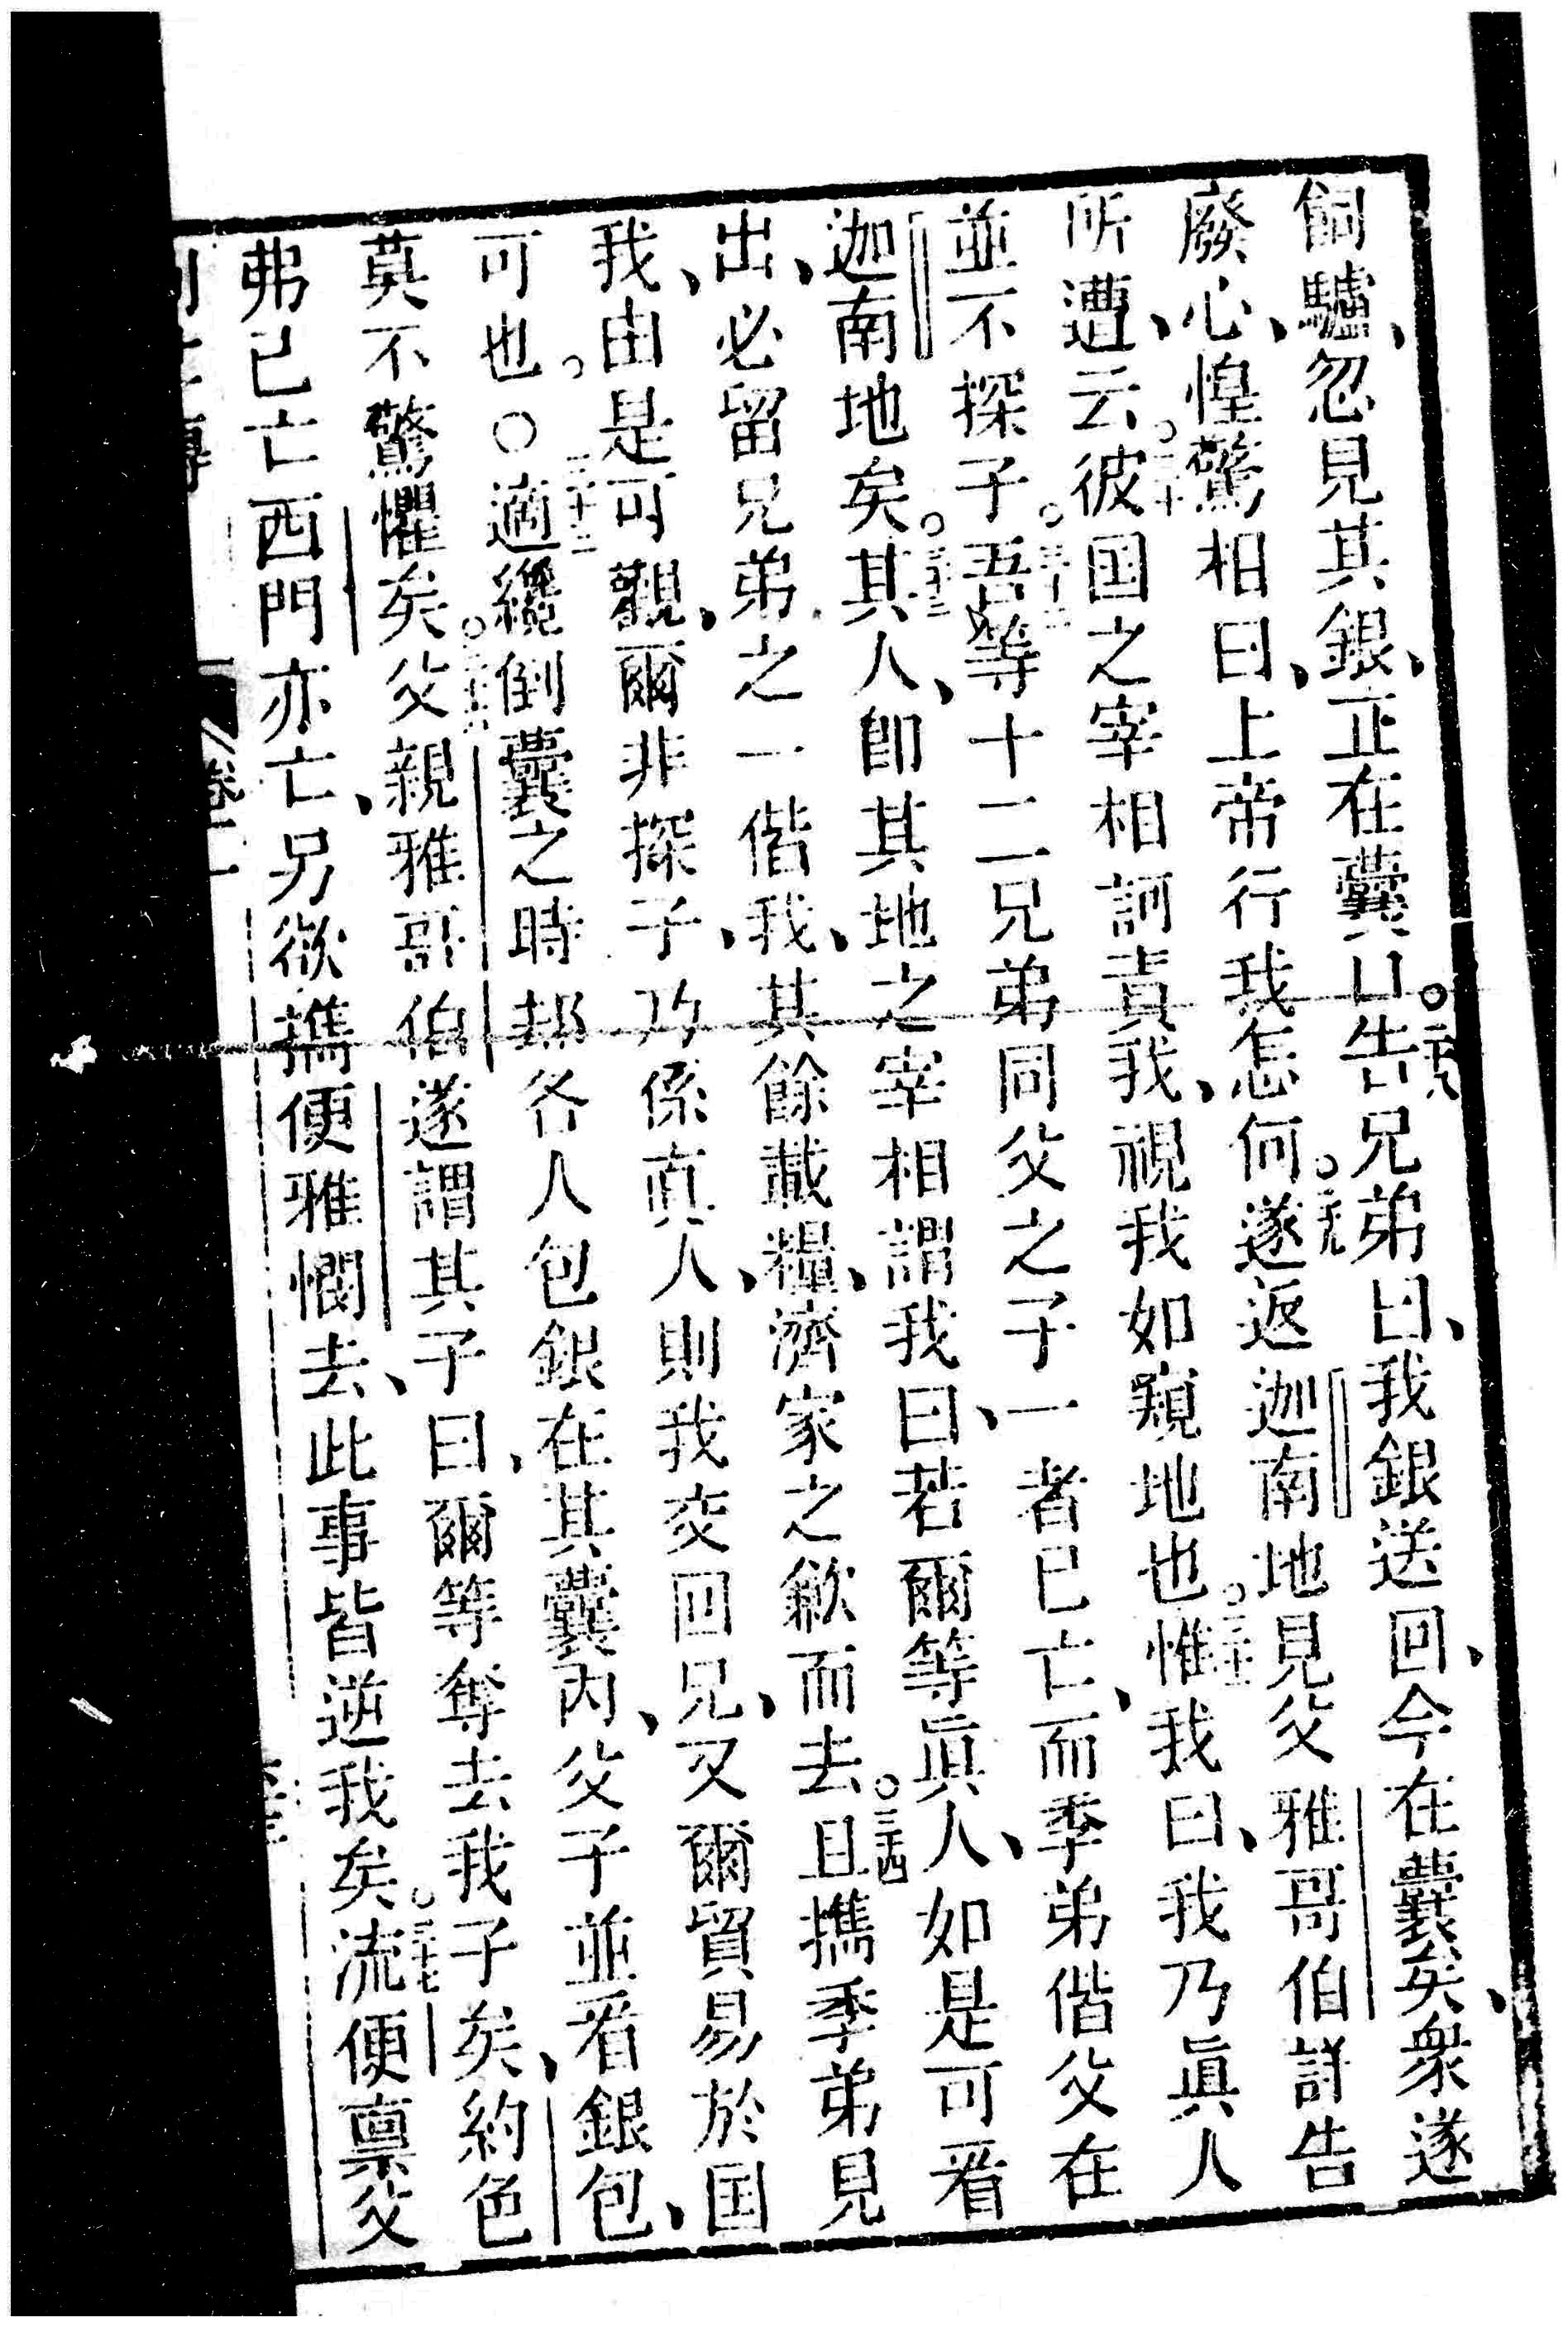 飼驢、忽見其銀、正在囊口。二十八告兄弟曰、我銀送回、今在囊矣、衆遂
廢心、惶驚相曰、上帝行我怎何。二十九遂返迦南地見父雅哥伯詳告
所遭、云。三十彼囯之宰相訶責我、視我如窺地也。三十一惟我曰、我乃眞人
並不探子。三十二吾等十二兄弟同父之子、一者已亡、而季弟偕父在
迦南地矣。三十三其人、即其地之宰相謂我曰、若爾等眞人、如是可看
出、必留兄弟之一偕我、其餘載糧、濟家之歉而去。三十四且攜季弟見
我、由是可觀、爾非探子、乃係真人、則我交回兄、又爾貿易於囯
可也。○三十五適纔倒囊之時、却各人包銀在其囊内、父子並看銀包、
莫不驚懼矣。三十六父親雅哥伯遂謂其子曰、爾等奪去我子矣、約色
弗已亡西門亦亡、另欲攜便雅憫去、此事皆逆我矣。三十七流便禀父